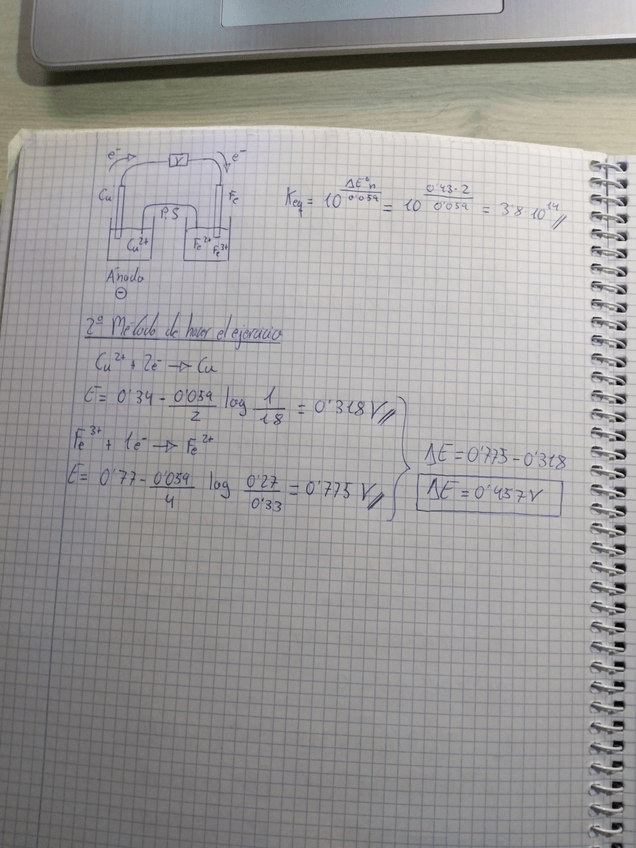 e⁻ V e⁻
Cu Fe
P.S
Cu²⁺ Fe²⁺ Fe³⁺
Ánodo
⊖
Keq = 10^(ΔE°n/0'059) = 10^(0'43·2/0'059) = 3'8·10¹⁴//
2º Método de hacer el ejercicio
Cu²⁺ + 2e⁻ → Cu
E = 0'34 - 0'059/2 log 1/'18 = 0'318 V//
Fe³⁺ + 1e⁻ → Fe²⁺
E = 0'77 - 0'059/1 log 0'27/0'33 = 0'775 V//
ΔE = 0'775 - 0'318
ΔE = 0'457 V